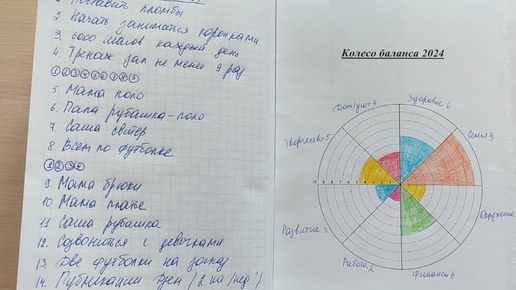 Поставить пломбы
2 Начать заниматься коронками
3. 6000 шагов каждый день
4 Тренаж зал не менее 9 раз
5. Мама поло
6. Папа рубашка - поло
7. Саша свитер
8. Всем по футболке
①②③④
9. Мама брюки
10. Мама платье
11. Саша рубашка
12. Созвониться с девочками
13. Две футболки на заказ
14. Публикации Дзен (2 на/нед!)
Колесо баланса 2024
Дом/уют 4
Здоровье 6
Творчество 5
Семья 9
Развитие 3
Окружение
Работа 2
Финансы 6